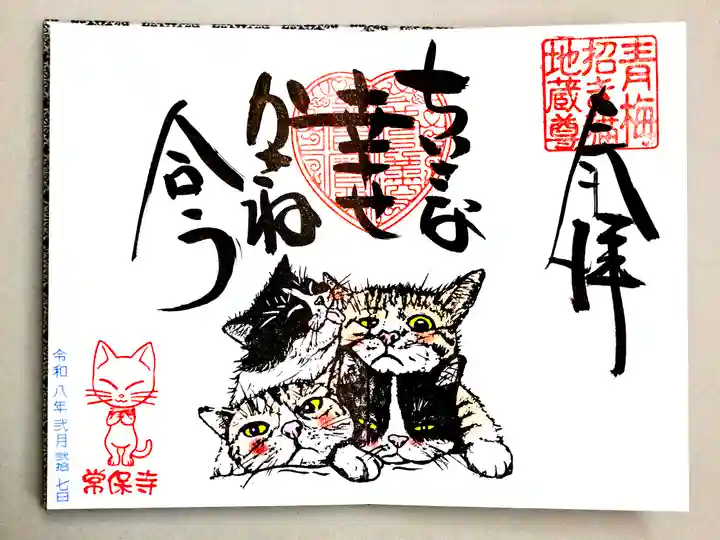 青梅
招き猫
地蔵尊
奉拝
ちいさな
幸せ
かさね
合う
令和八年弐月弐拾七日
常保寺